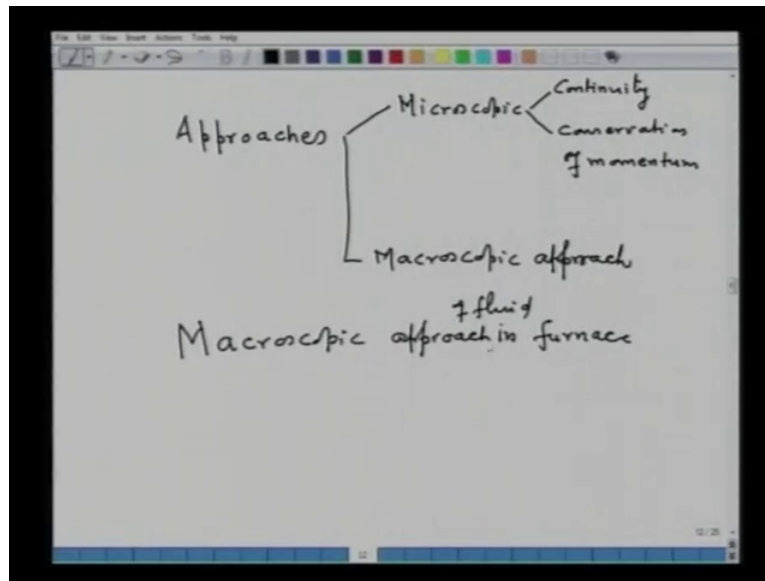 File Edit View Insert Actions Tools Help
Approaches
Microscopic
Continuity
Conservation
of momentum
Macroscopic approach
of fluid
Macroscopic approach in furnace
12/25
12